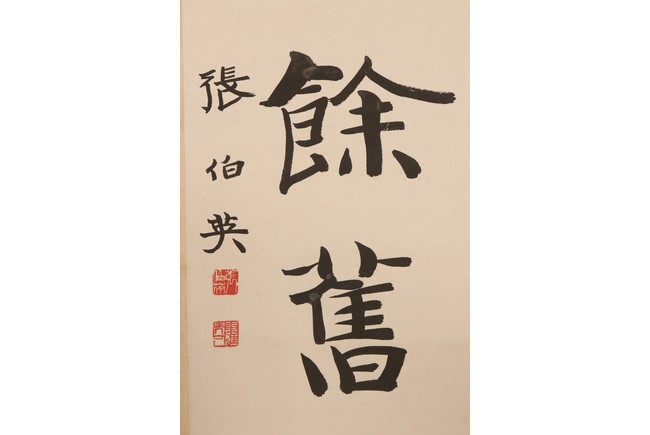 餘舊
張伯英